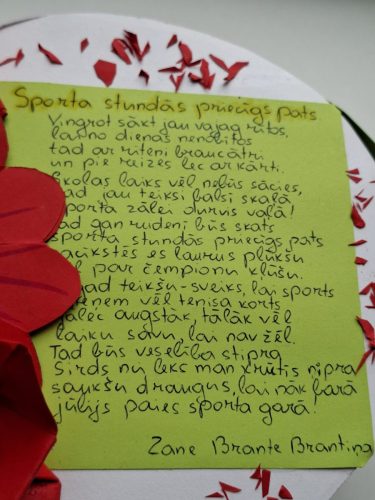 Sporta stundās priecīgs pats
Vingrot sākt jau vajag rītos,
lai no dienas nenolītos
tad ar riteni braucātri
un pie reizes lec ar kārti.
Skolas laiks vēl nebūs sācies,
tad jau teiksi balsī skaļā
sporta zālei durvis vaļā!
tad gan rudenī būs skats
sporta stundās priecīgs pats
sacīkstēs es laurus plūkšu
par čempionu kļūšu.
tad teikšu-sveiks, lai sports
vēl tenisa korts
lec augstāk, tālāk vēl
laiku savu, lai nav žēl.
Tad būs veselība stipra
Sirds nu leks man krūtīs ņipra
saukšu draugus, lai nāk barā
jūlijs paies sporta garā!
Zane Brante Brantiņa